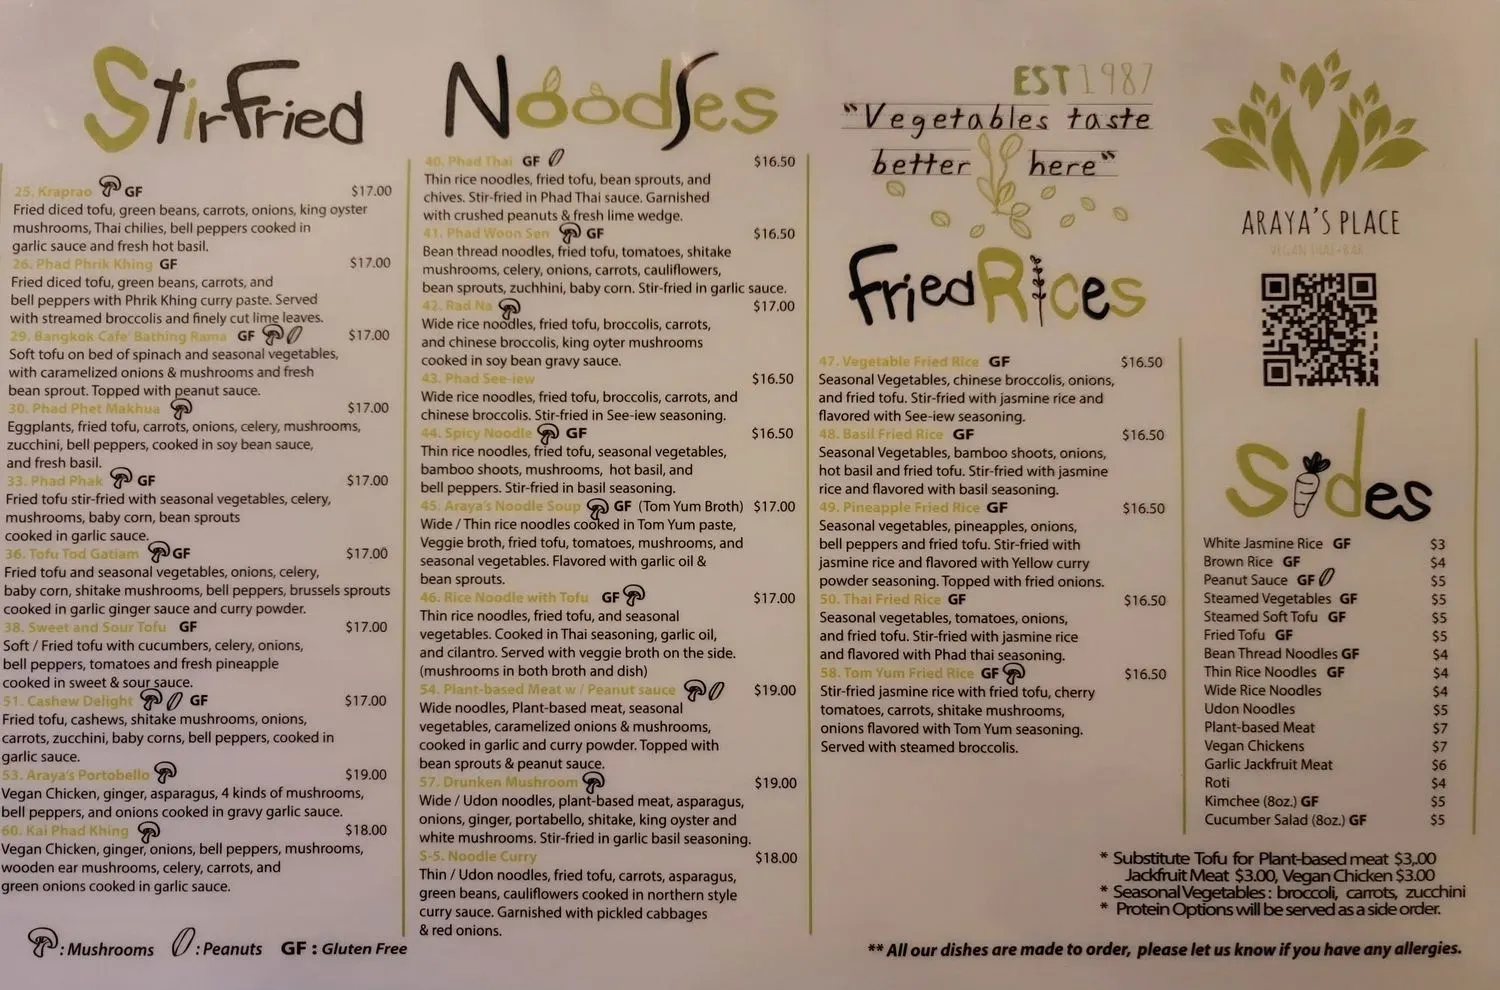 StirFried
25. Kraprao GF $17.00
Fried diced tofu, green beans, carrots, onions, king oyster
mushrooms, Thai chilies, bell peppers cooked in
garlic sauce and fresh hot basil.
26. Phad Phrik Khing GF $17.00
Fried diced tofu, green beans, carrots, and
bell peppers with Phrik Khing curry paste. Served
with streamed broccolis and finely cut lime leaves.
29. Bangkok Cafe' Bathing Rama GF $17.00
Soft tofu on bed of spinach and seasonal vegetables,
with caramelized onions & mushrooms and fresh
bean sprout. Topped with peanut sauce.
30. Phad Phet Makhua $17.00
Eggplants, fried tofu, carrots, onions, celery, mushrooms,
zucchini, bell peppers, cooked in soy bean sauce,
and fresh basil.
33. Phad Phak GF $17.00
Fried tofu stir-fried with seasonal vegetables, celery,
mushrooms, baby corn, bean sprouts
cooked in garlic sauce.
36. Tofu Tod Gatiam GF $17.00
Fried tofu and seasonal vegetables, onions, celery,
baby corn, shitake mushrooms, bell peppers, brussels sprouts
cooked in garlic ginger sauce and curry powder.
38. Sweet and Sour Tofu GF $17.00
Soft / Fried tofu with cucumbers, celery, onions,
bell peppers, tomatoes and fresh pineapple
cooked in sweet & sour sauce.
51. Cashew Delight GF $17.00
Fried tofu, cashews, shitake mushrooms, onions,
carrots, zucchini, baby corns, bell peppers, cooked in
garlic sauce.
53. Araya's Portobello $19.00
Vegan Chicken, ginger, asparagus, 4 kinds of mushrooms,
bell peppers, and onions cooked in gravy garlic sauce.
60. Kai Phad Khing $18.00
Vegan Chicken, ginger, onions, bell peppers, mushrooms,
wooden ear mushrooms, celery, carrots, and
green onions cooked in garlic sauce.
: Mushrooms : Peanuts GF : Gluten Free
Noodles
40. Phad Thai GF $16.50
Thin rice noodles, fried tofu, bean sprouts, and
chives. Stir-fried in Phad Thai sauce. Garnished
with crushed peanuts & fresh lime wedge.
41. Phad Woon Sen GF $16.50
Bean thread noodles, fried tofu, tomatoes, shitake
mushrooms, celery, onions, carrots, cauliflowers,
bean sprouts, zuchhini, baby corn. Stir-fried in garlic sauce.
42. Rad Na $17.00
Wide rice noodles, fried tofu, broccolis, carrots,
and chinese broccolis, king oyter mushrooms
cooked in soy bean gravy sauce.
43. Phad See-iew $16.50
Wide rice noodles, fried tofu, broccolis, carrots, and
chinese broccolis. Stir-fried in See-iew seasoning.
44. Spicy Noodle GF $16.50
Thin rice noodles, fried tofu, seasonal vegetables,
bamboo shoots, mushrooms, hot basil, and
bell peppers. Stir-fried in basil seasoning.
45. Araya's Noodle Soup GF (Tom Yum Broth) $17.00
Wide / Thin rice noodles cooked in Tom Yum paste,
Veggie broth, fried tofu, tomatoes, mushrooms, and
seasonal vegetables. Flavored with garlic oil &
bean sprouts.
46. Rice Noodle with Tofu GF $17.00
Thin rice noodles, fried tofu, and seasonal
vegetables. Cooked in Thai seasoning, garlic oil,
and cilantro. Served with veggie broth on the side.
(mushrooms in both broth and dish)
54. Plant-based Meat w / Peanut sauce $19.00
Wide noodles, Plant-based meat, seasonal
vegetables, caramelized onions & mushrooms,
cooked in garlic and curry powder. Topped with
bean sprouts & peanut sauce.
57. Drunken Mushroom $19.00
Wide / Udon noodles, plant-based meat, asparagus,
onions, ginger, portobello, shitake, king oyster and
white mushrooms. Stir-fried in garlic basil seasoning.
S-5. Noodle Curry $18.00
Thin / Udon noodles, fried tofu, carrots, asparagus,
green beans, cauliflowers cooked in northern style
curry sauce. Garnished with pickled cabbages
& red onions.
EST 1987
"Vegetables taste
better here"
Fried Rices
47. Vegetable Fried Rice GF $16.50
Seasonal Vegetables, chinese broccolis, onions,
and fried tofu. Stir-fried with jasmine rice and
flavored with See-iew seasoning.
48. Basil Fried Rice GF $16.50
Seasonal Vegetables, bamboo shoots, onions,
hot basil and fried tofu. Stir-fried with jasmine
rice and flavored with basil seasoning.
49. Pineapple Fried Rice GF $16.50
Seasonal vegetables, pineapples, onions,
bell peppers and fried tofu. Stir-fried with
jasmine rice and flavored with Yellow curry
powder seasoning. Topped with fried onions.
50. Thai Fried Rice GF $16.50
Seasonal vegetables, tomatoes, onions,
and fried tofu. Stir-fried with jasmine rice
and flavored with Phad thai seasoning.
58. Tom Yum Fried Rice GF $16.50
Stir-fried jasmine rice with fried tofu, cherry
tomatoes, carrots, shitake mushrooms,
onions flavored with Tom Yum seasoning.
Served with steamed broccolis.
ARAYA'S PLACE
VEGAN THAI+BAR
Sides
White Jasmine Rice GF $3
Brown Rice GF $4
Peanut Sauce GF $5
Steamed Vegetables GF $5
Steamed Soft Tofu GF $5
Fried Tofu GF $5
Bean Thread Noodles GF $4
Thin Rice Noodles GF $4
Wide Rice Noodles $4
Udon Noodles $5
Plant-based Meat $7
Vegan Chickens $7
Garlic Jackfruit Meat $6
Roti $4
Kimchee (8oz.) GF $5
Cucumber Salad (8oz.) GF $5
* Substitute Tofu for Plant-based meat $3,.00
Jackfruit Meat $3.00, Vegan Chicken $3.00
* Seasonal Vegetables : broccoli, carrots, zucchini
* Protein Options will be served as a side order.
** All our dishes are made to order, please let us know if you have any allergies.